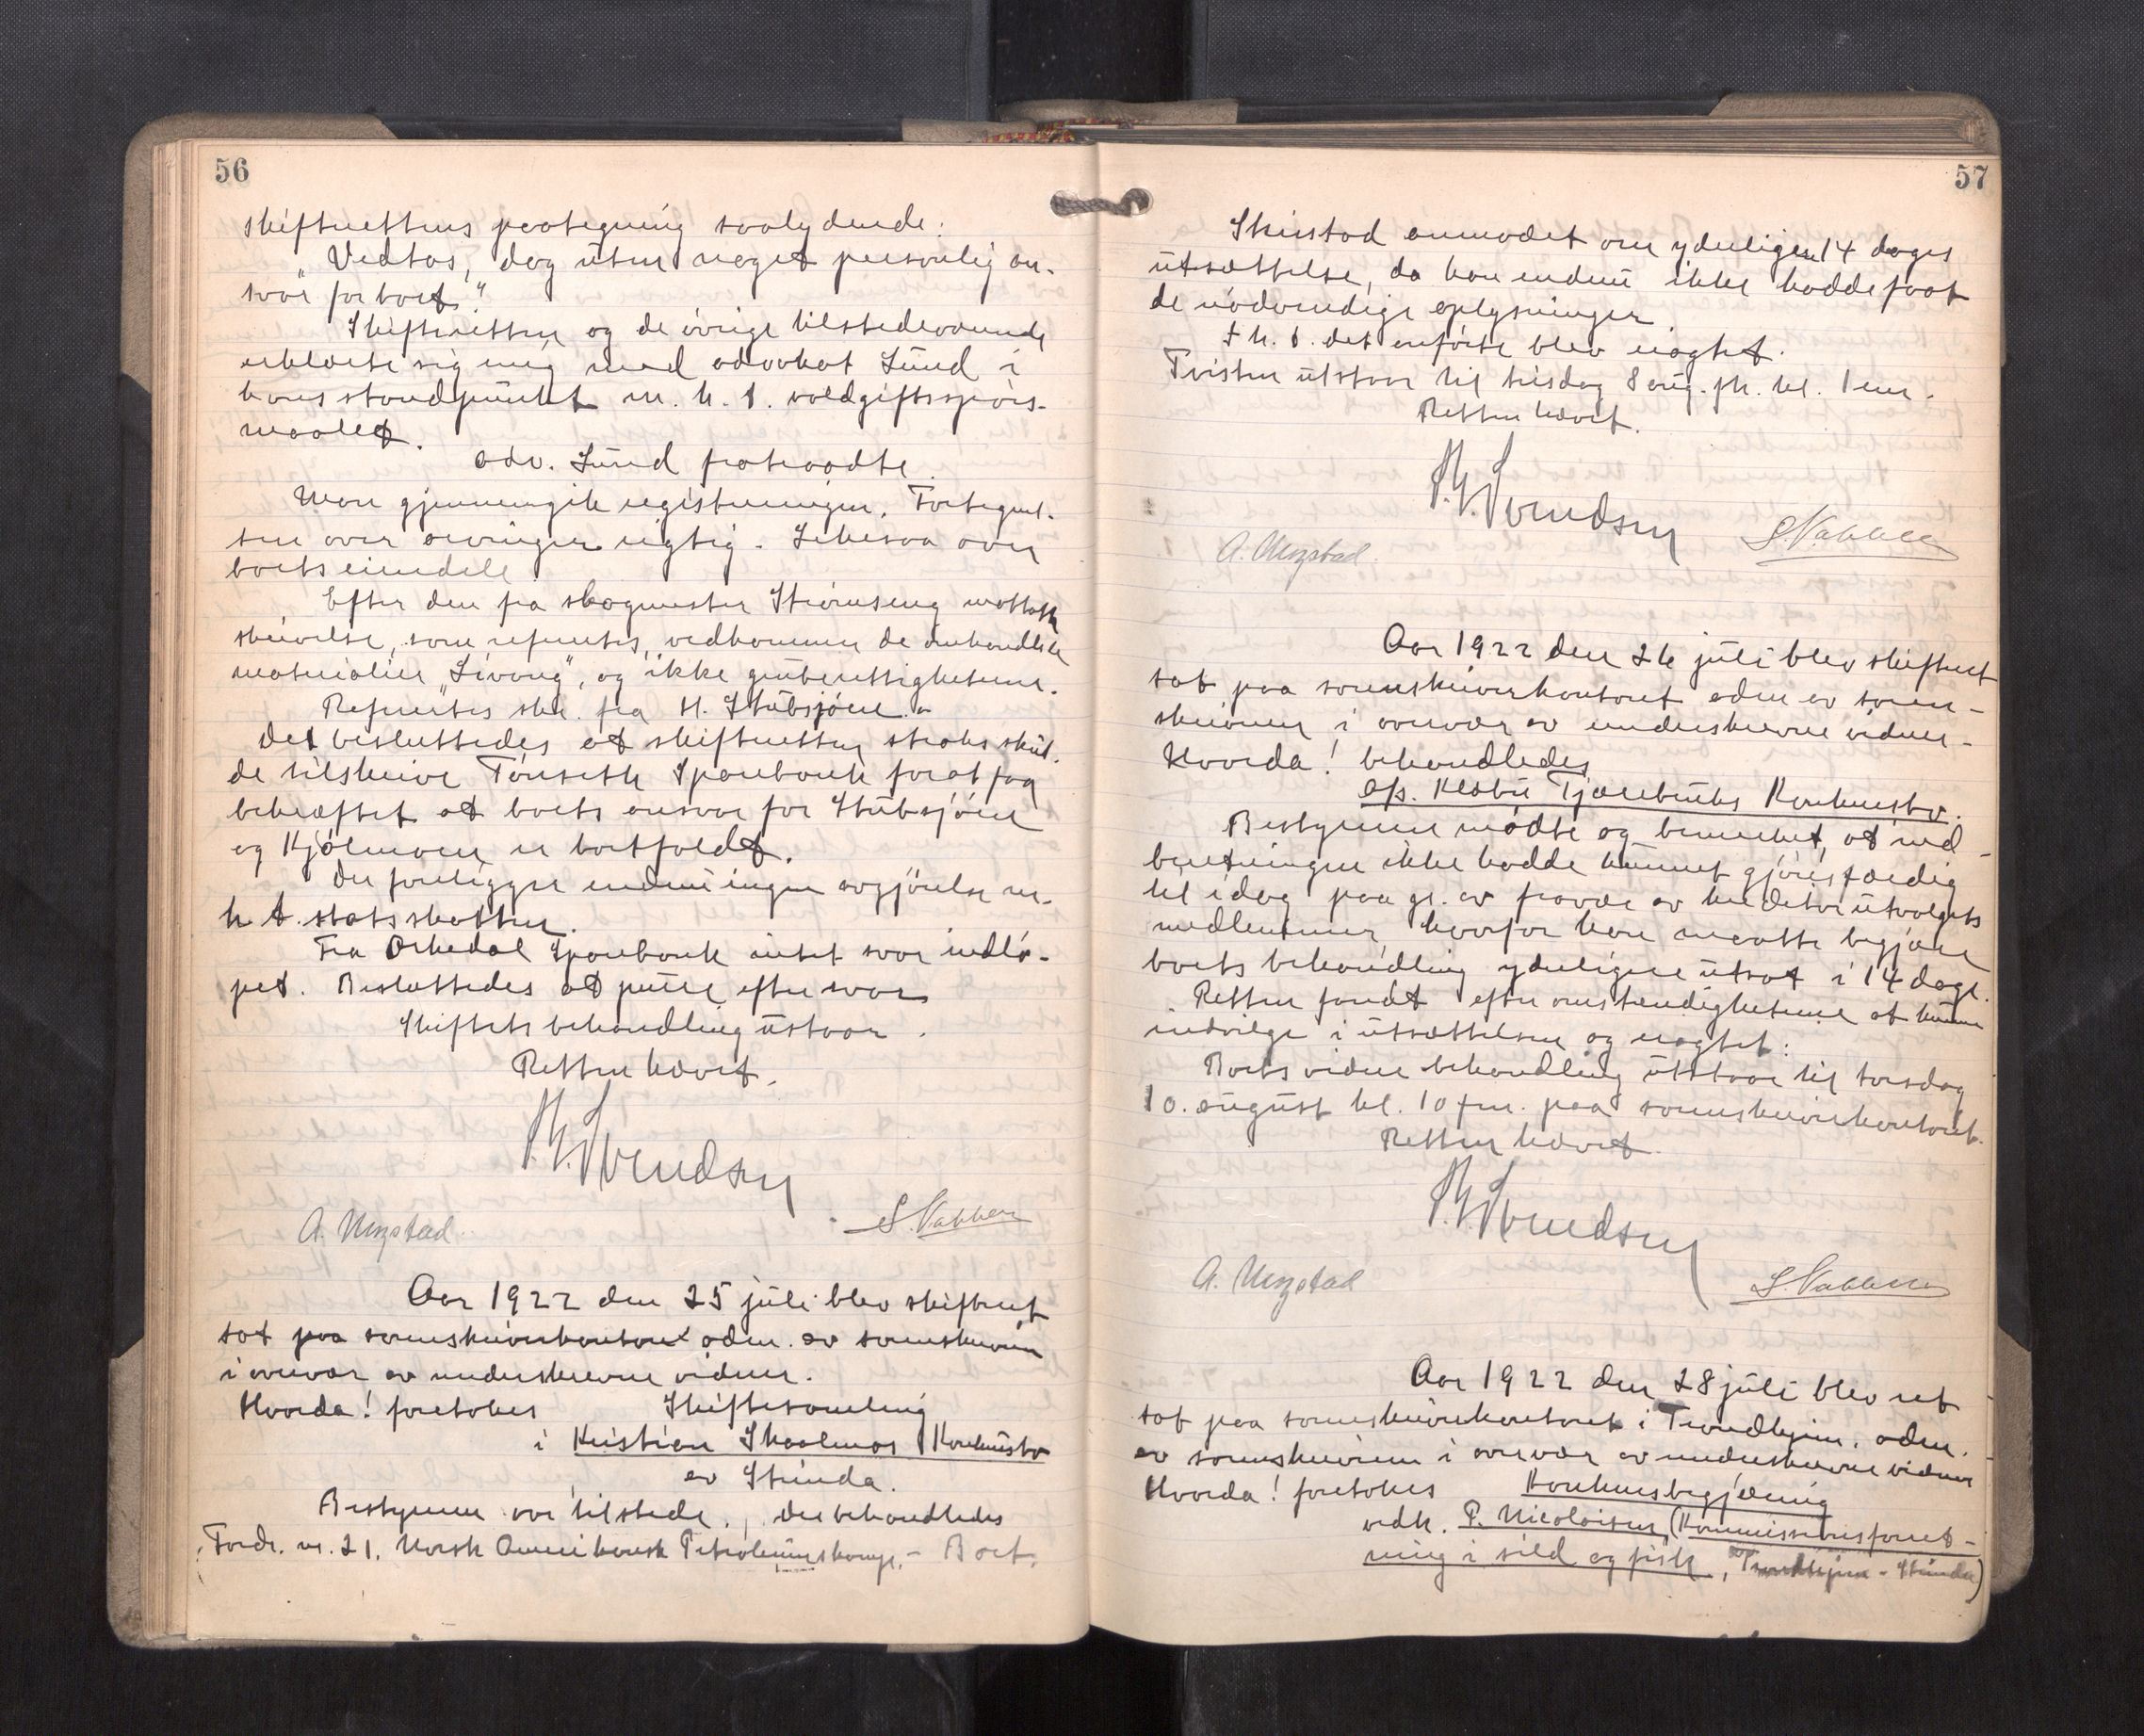 56
skifterettens paategning saalydende:
"Vedtas, dog uten noget personlig an-
svar for boet."
Skifteretten og de øvrige tilstedeværende
erklærte sig enig med advokat Lund i
hans standpunkt m. h. t. voldgiftsspørs-
maalet.
Adv. Lund fratraadte.
Man gjennemgik registreringen. Fortegnel-
sen over arvinger rigtig. Likesaa over
boets eiendele
Efter den fra skogmester Strømseng mottatte
skrivelse, som refertes, vedkommer de omhandlede
materialier "Livang", og ikke grubererettighetene.
Refertes skr. fra H. Stubsjøen.
Det besluttedes at skifteretten straks skul-
de tilskrive Tønseth Sparebank for at faa
bekræftet at boets ansvar for Stubsjøen
og Kjølmoen er bortfaldt.
Der foreligger endnu ingen avgjørelse m.
h. t. statsskatten.
Fra Orkedal Sparebank intet svar indlø-
pet. Besluttedes at purre efter svar
Skiftets behandling utstaar.
Retten hævet.
P. G. Svendsen
A. Ungstad. S. Nakken
Aar 1922 den 25 juli blev skifteret
sat paa sorenskriverkontoret adm. av sorenskriveren
i overvær av underskrevne vidner.
Hvorda! foretokes Skiftesamling
i Kristian Skaalmos Konkursbo
av Strinda.
Bestyreren var tilstede. Der behandledes
Fordr. nr. 21. Norsk Amerikansk Petroleumskomp. - Boet.
57
Skirstad anmodet om yderligere 14 dages
utsættelse, da han endnu ikke hadde faat
de nødvendige oplysninger.
I h. t. det anførte blev eragtet:
Tvisten utstaar til tirsdag 8 aug. ph. kl. 1 em.
Retten hævet.
P. G. Svendsen
A. Ungstad. S. Nakken
Aar 1922 den 26 juli blev skifteret
sat paa sorenskriverkontoret adm av soren-
skriveren i overvær av underskrevne vidner.
Hvorda! behandledes
A/s. Klæbu Tjærebruks Konkursbo.
Bestyreren mødte og bemerket, at ind-
beretningen ikke hadde kunnet gjøres færdig
til idag paa gr. av fravær av kreditorutvalgets
medlemmer, hvorfor han maatte begjære
boets behandling yderligere utsat i 14 dage.
Retten fandt efter omstendighetene at kunne
indvilge i utsættelsen og eragtet:
Boets videre behandling utstaar til torsdag
10. august kl. 10 fm. paa sorenskriverkontoret.
Retten hævet.
P. G. Svendsen
A. Ungstad S. Nakken
Aar 1922 den 28 juli blev ret
sat paa sorenskriverkontoret i Trondhjem. adm.
av sorenskriveren i overvær av underskrevne vidner
Hvorda! foretokes Konkursbegjæring
vedk. P. Nicolaisen, (Kommissionsforret-
ning i sild og fisk, Trondhjem - Strinda)